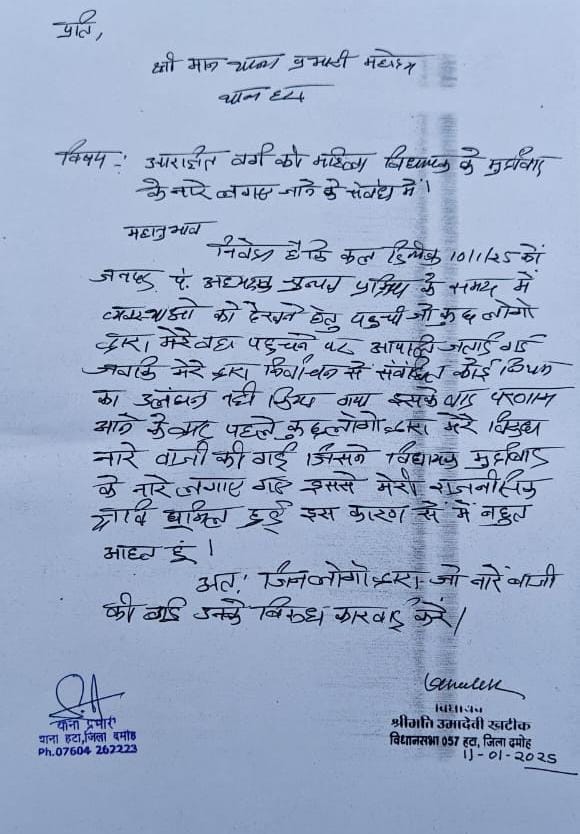 प्रति,
श्री मान थाना प्रभारी महोदय
थाना हटा
विषय :- आरक्षित वर्ग की महिला विधायक के मुर्दाबाद
के नारे लगाए जाने के संबंध में।
महानुभाव
निवेदन है कि कल दिनांक 10/1/25 को
जनपद पं. अध्यक्ष चुनाव प्रक्रिया के समय में
व्यवस्थाओं को देखने हेतु पहुची जो कुछ लोगो
द्वारा मेरे वहा पहुचने पर आपत्ती जताई गई
जबकि मेरे द्वारा निर्वाचन से संबंधित कोई नियम
का उलंघन नही किया गया इसके बाद परिणाम
आने के बाद पहले कुछ लोगो द्वारा मेरे विरुद्ध
नारे बाजी की गई जिसमे विधायक मुर्दाबाद
के नारे लगाए गए इससे मेरी राजनीतिक
छवि धूमिल हुई इस कारण से में बहुत
आहत हूं।
अत: जिन लोगो द्वारा जो नारे बाजी
की गई उनके विरुध कारवाई करें।
थाना प्रभारी
थाना हटा, जिला दमोह
Ph.07604 262223
विधायक
श्रीमति उमादेवी खटीक
विधानसभा 057 हटा, जिला दमोह
11-01-2025